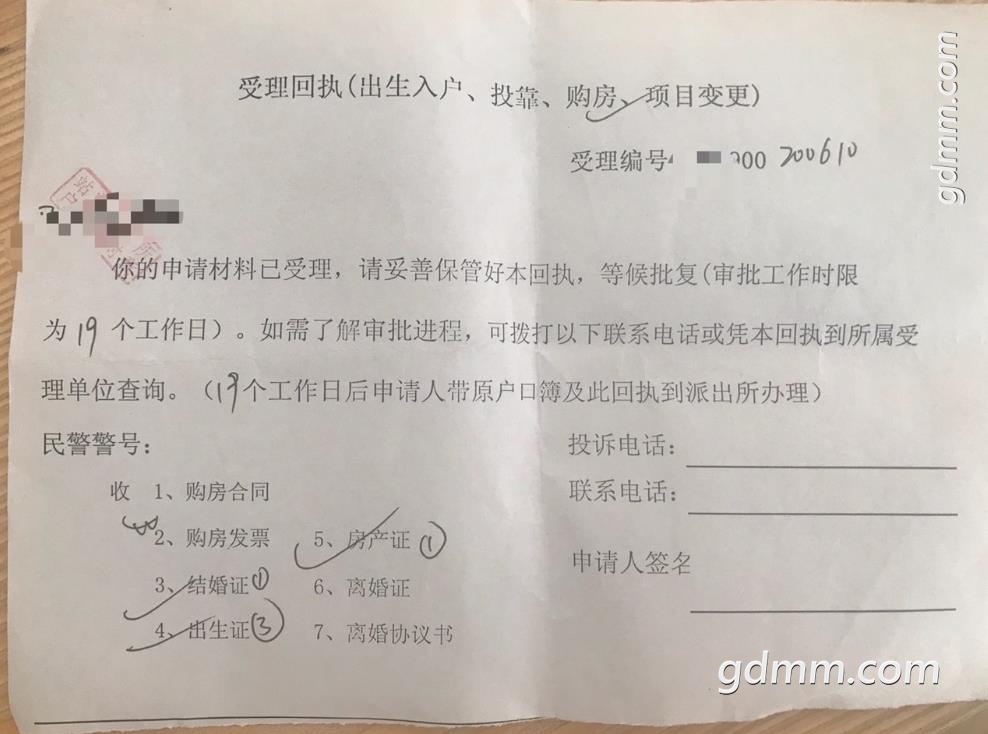 受理回执(出生入户、投靠、购房、项目变更)
受理编号 00 200610
你的申请材料已受理，请妥善保管好本回执，等候批复(审批工作时限
为 19 个工作日）。如需了解审批进程，可拨打以下联系电话或凭本回执到所属受
理单位查询。（19个工作日后申请人带原户口簿及此回执到派出所办理）
民警警号：
投诉电话：
收 1、购房合同
联系电话：
2、购房发票 5、房产证 ①
3、结婚证① 6、离婚证
申请人签名
4、出生证③ 7、离婚协议书
gdmm.com
gdmm.com